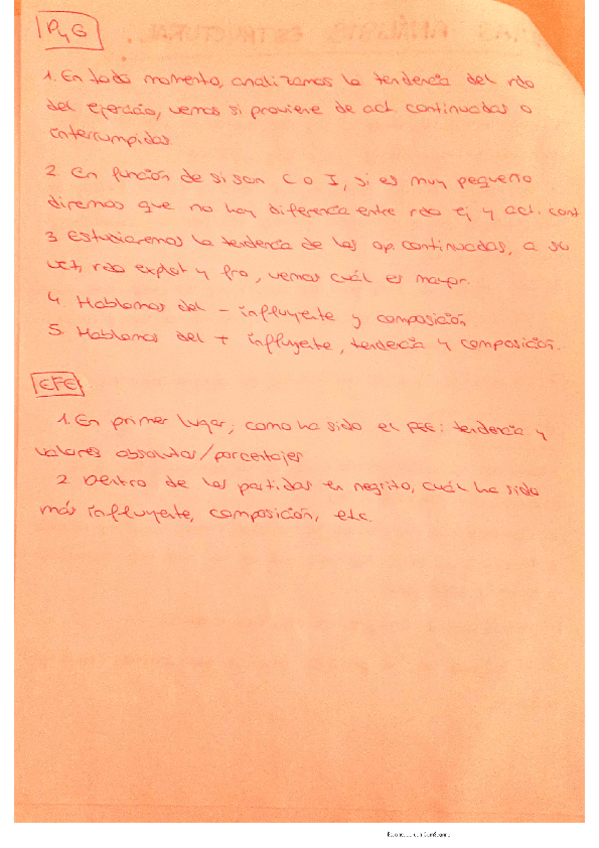 PyG
1. En todo momento, analizamos la tendencia del rdo
del ejercicio, vemos si proviene de act. continuadas o
interrumpidas
2. En función de si son C o I, si es muy pequeño
diremos que no hay diferencia entre rdo ej y act. cont
3. Estudiaremos la tendencia de las op. continuadas, a su
vez, rdo explot y fro, vemos cuál es mayor.
4. Hablamos del - influyente y composición
5. Hablamos del + influyente, tendencia y composición.
EFE
1. En primer lugar, como ha sido el FEE: tendencia y
valores absolutos/porcentajes
2. Dentro de las partidas en negrita, cuál ha sido
más influyente, composición, etc.